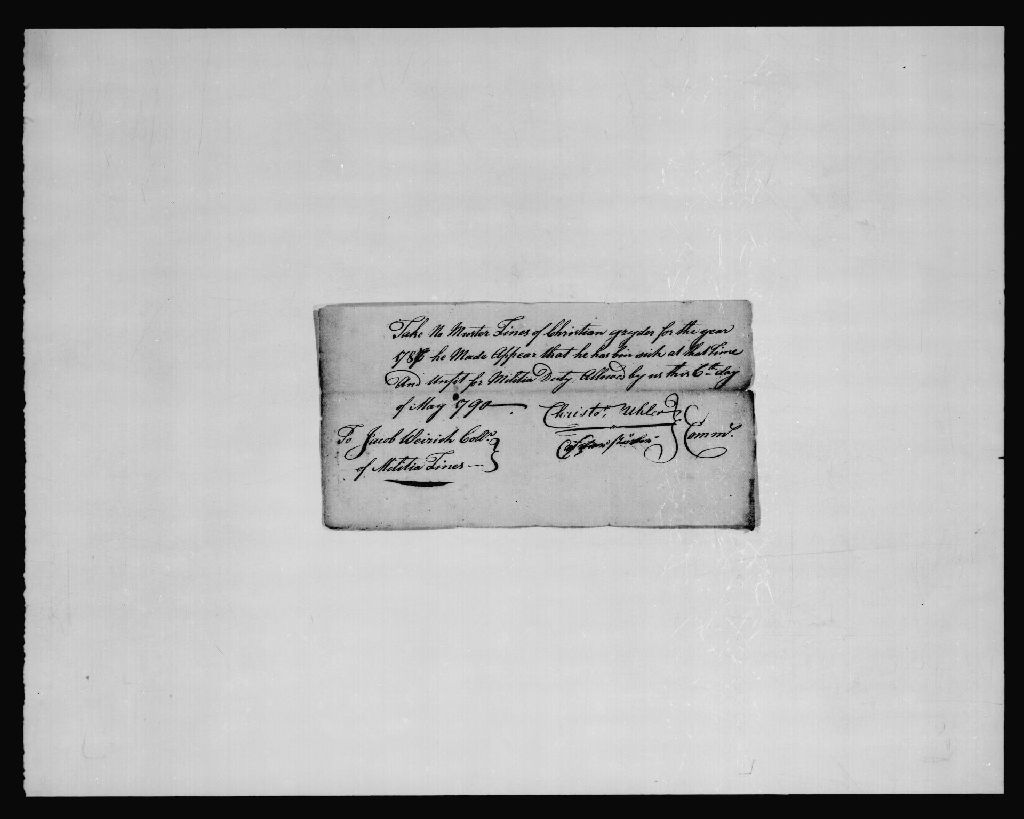 Take No Muster Fines of Christian gryder for the year
he Made Appear that he has bin sick at that time
And Unfit for Militia Duty Allowed by us this 6th day
of May 1790
Christor. Uhler
Comms.
To Jacob Weirich Collr.
of Melitia Fines